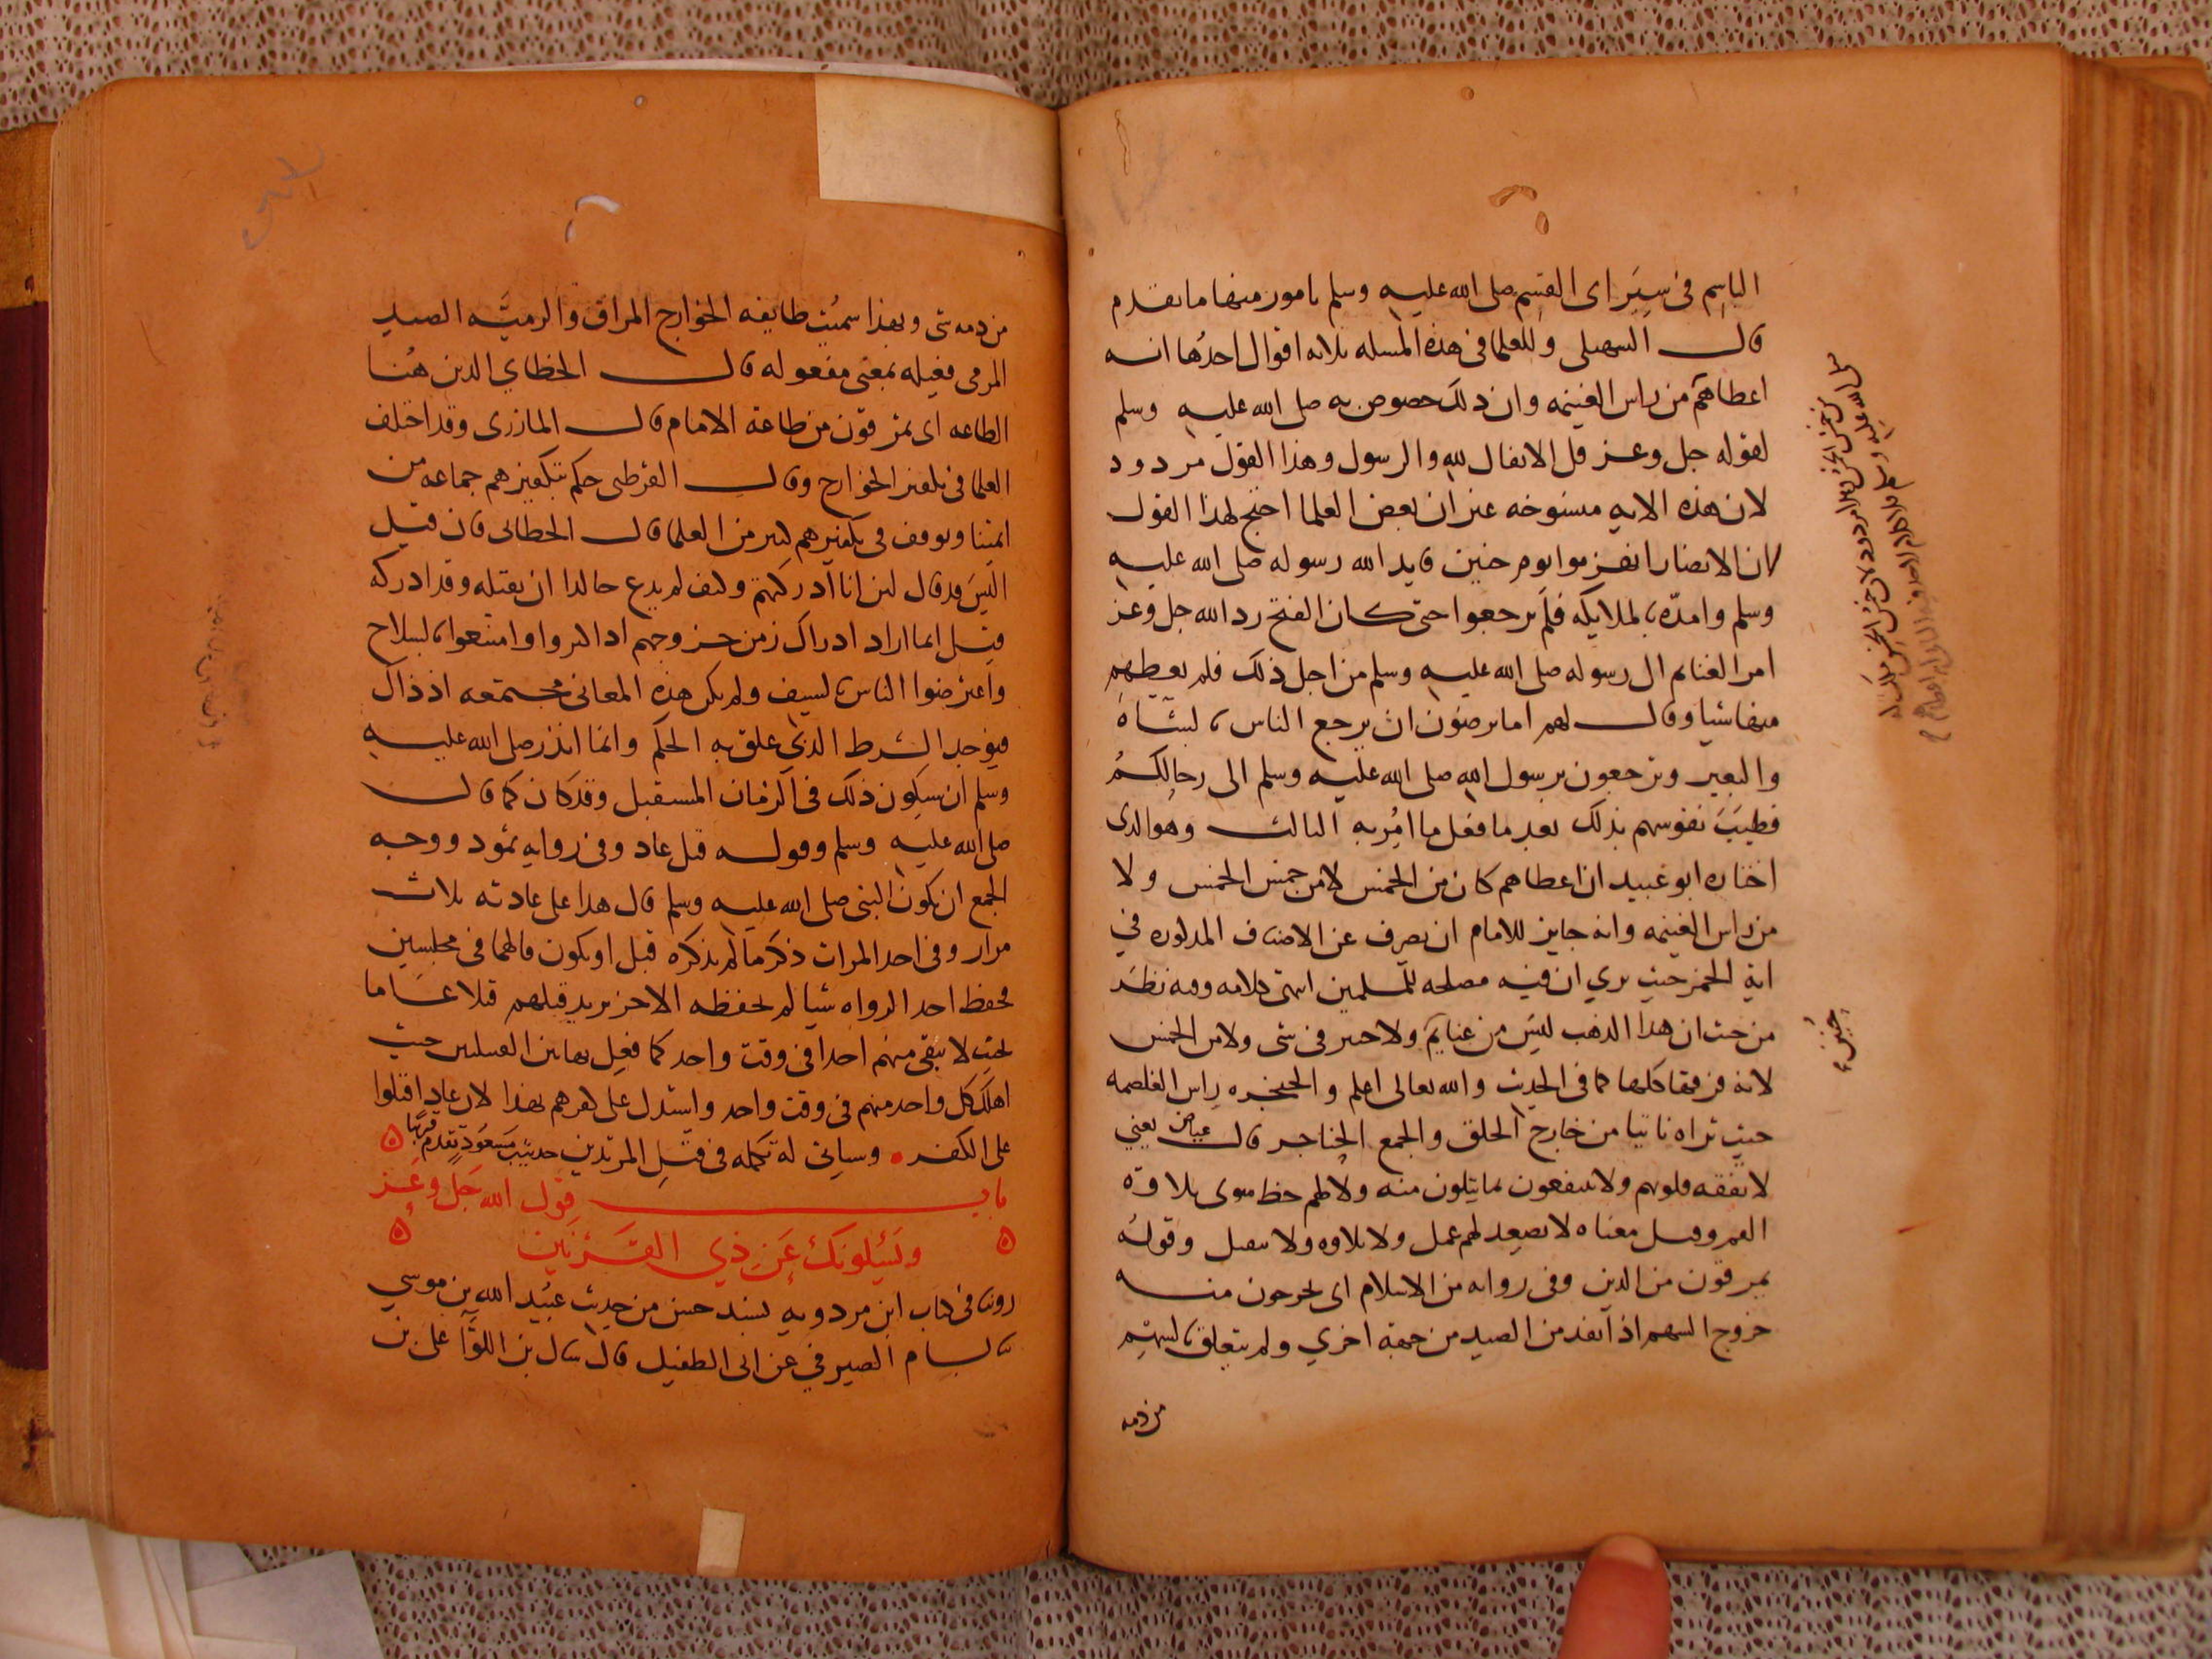 الباسم في سير اى القسم صلى الله عليه وسلم بامور منها ما تقدم
قال السهيلى وللعلما في هذه المسله ثلاثه اقوال احدها انه
اعطاهم من راس الغنيمه وان ذلك خصوص به صلى الله عليه وسلم
لقوله جل وعز قل الانفال لله والرسول وهذا القول مردود
لان هذه الايه منسوخه غير ان بعض العلما احتج لهذا القول
بان الانصار انهزموا يوم حنين فايد الله رسوله صلى الله عليه
وسلم وامده بالملايكه فلم يرجعوا حتى كان الفتح رد الله جل وعز
امر الغنايم الى رسوله صلى الله عليه وسلم من اجل ذلك فلم يعطهم
منها شيا وقال لهم اما ترضون ان يرجع الناس بالشاة
والبعير وترجعون برسول الله صلى الله عليه وسلم الى رحالكم
فطيب نفوسهم بذلك بعد ما فعل ما امر به الثالث وهو الذى
اختاره ابو عبيد ان اعطاهم كان من الخمس لا من خمس الخمس ولا
من راس الغنيمه وانه جايز للامام ان يصرف عن الاصناف المذكوره في
اية الخمس حيث يري ان فيه مصلحه للمسلمين انتهى كلامه وفيه نظر
من حيث ان هذا الذهب ليس من غنايم ولا خيبر في شى ولا من الخمس
حنين
لانه فرقها كلها كما في الحديث والله تعالى اعلم والحنجره راس الغلصمه
حيث تراه ناتيا من خارج الحلق والجمع الحناجر قال عياض يعني
لا تفقه قلوبهم ولا ينتفعون بما يتلون منه ولا لهم حظ سوى تلاوة
الفم وقيل معناه لا يصعد لهم عمل ولا تلاوه ولا تقبل وقوله
يمرقون من الدين وفى روايه من الاسلام اى يخرجون منه
خروج السهم اذا نفذ من الصيد من جهة اخري ولم يتعلق بالسهم
من دمه
من دمه شى وبهذا سميت طايفه الخوارج المراق والرميه الصيد
المرمى فعيله بمعنى مفعوله قال الخطابي الدين هنا
الطاعه اى يمرقون من طاعة الامام قال المازرى وقد اختلف
العلما في تكفير الخوارج وقال القرطبى حكم بتكفيرهم جماعه من
ايمتنا وتوقف في تكفيرهم كثير من العلما قال الخطابى فان قيل
اليس قد قال لئن انا ادركتهم وكيف لم يدع خالدا ان يقتله وقد ادركه
قيل انما اراد ادراك زمن خروجهم اذا كثروا وامتنعوا بالسلاح
واعترضوا الناس بالسيف ولم تكن هذه المعانى مجتمعه اذ ذاك
فيوجد الشرط الذي علق به الحكم وانما انذر صلى الله عليه
وسلم ان سيكون ذلك في الزمان المستقبل وقد كان كما قال
صلى الله عليه وسلم وقوله قتل عاد وفى روايه ثمود ووجه
الجمع ان يكون النبى صلى الله عليه وسلم قال هذا على عادته ثلاث
مرار وفى احد المرات ذكر ما لم يذكره قبل او يكون قالهما فى مجلسين
فحفظ احد الرواه شيا لم يحفظه الاخر يريد قتلهم قتلا عاما
بحيث لا يبقى منهم احدا فى وقت واحد كما فعل بهاتين القبيلتين حيث
اهلك كل واحد منهم فى وقت واحد واستدل على كفرهم بهذا لان عاد اقتلوا
على الكفر وسياتى له تكمله فى قتل المرتدين حديث مسعود تقدم قريبا
باب قول الله جل وعز
ويسئلونك عن ذي القرنين
روينا في كتاب ابن مردويه بسند حسن من حديث عبيد الله بن موسي
ثنا بسام الصيرفي عن ابى الطفيل قال سال بن الكوا على بن